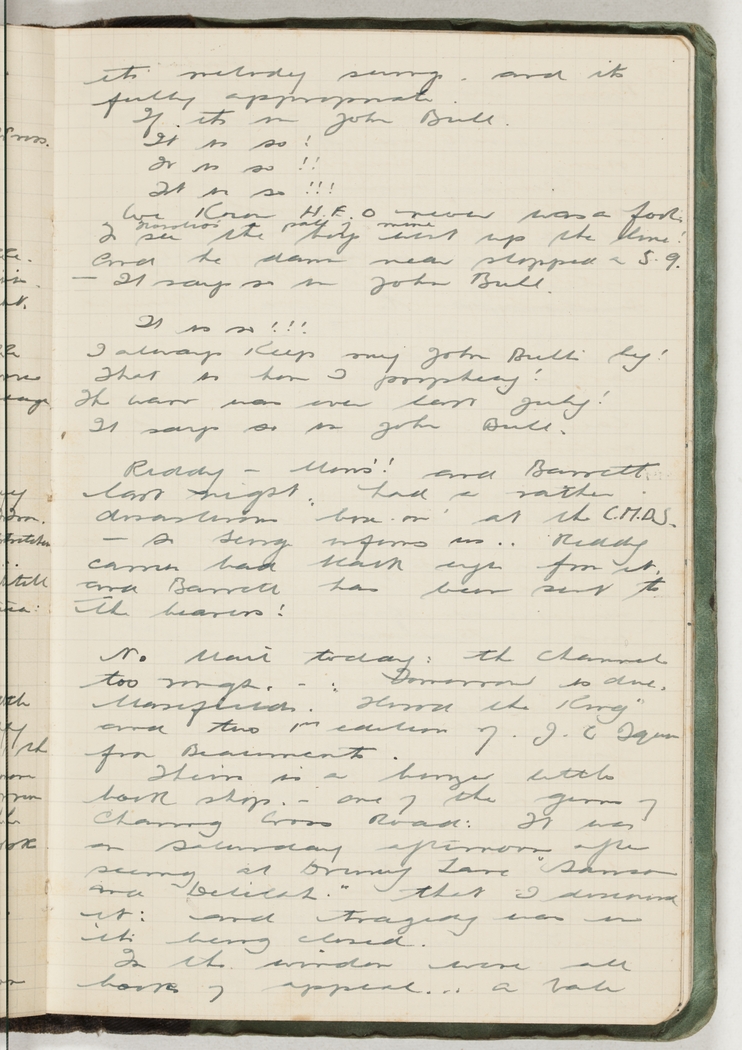 its melody swing. and its
fully appropriate.
If its in John Bull.
It is so!
It is so!!
It is so!!!
We Know H.E.O never was a fool.
of mine
I see the boy went up the line!
And he damn near stopped a 5.9.
— It says so in John Bull.
It is so!!!
I always Keep my John Bulls by!
That is how I prophesy!
The war was over last July!
It says so in John Bull.
Reddy – Mons!! and Barrett
last night, had a rather
disastrous 'box-on' at the C.M.D.S.
— so Serg informs us.. Reddy
carries bad mark up for it,
and Barrett has been sent to
the bearers!
No Mail today: the Channel
too rough. - . Tomorrow is due,
Masefields. "Good the King"
and two 1st edition of J. C Squire
from Beaumonts.
Theirs is a little
book shop. – one of the gems of
Charing Cross Road: It was
on Saturday afternoon after
seeing at Drury Lane "Samson
and Delilah." that I discovered
it: and tragedy was in
its being closed.
In the window were all
books of appeal... a